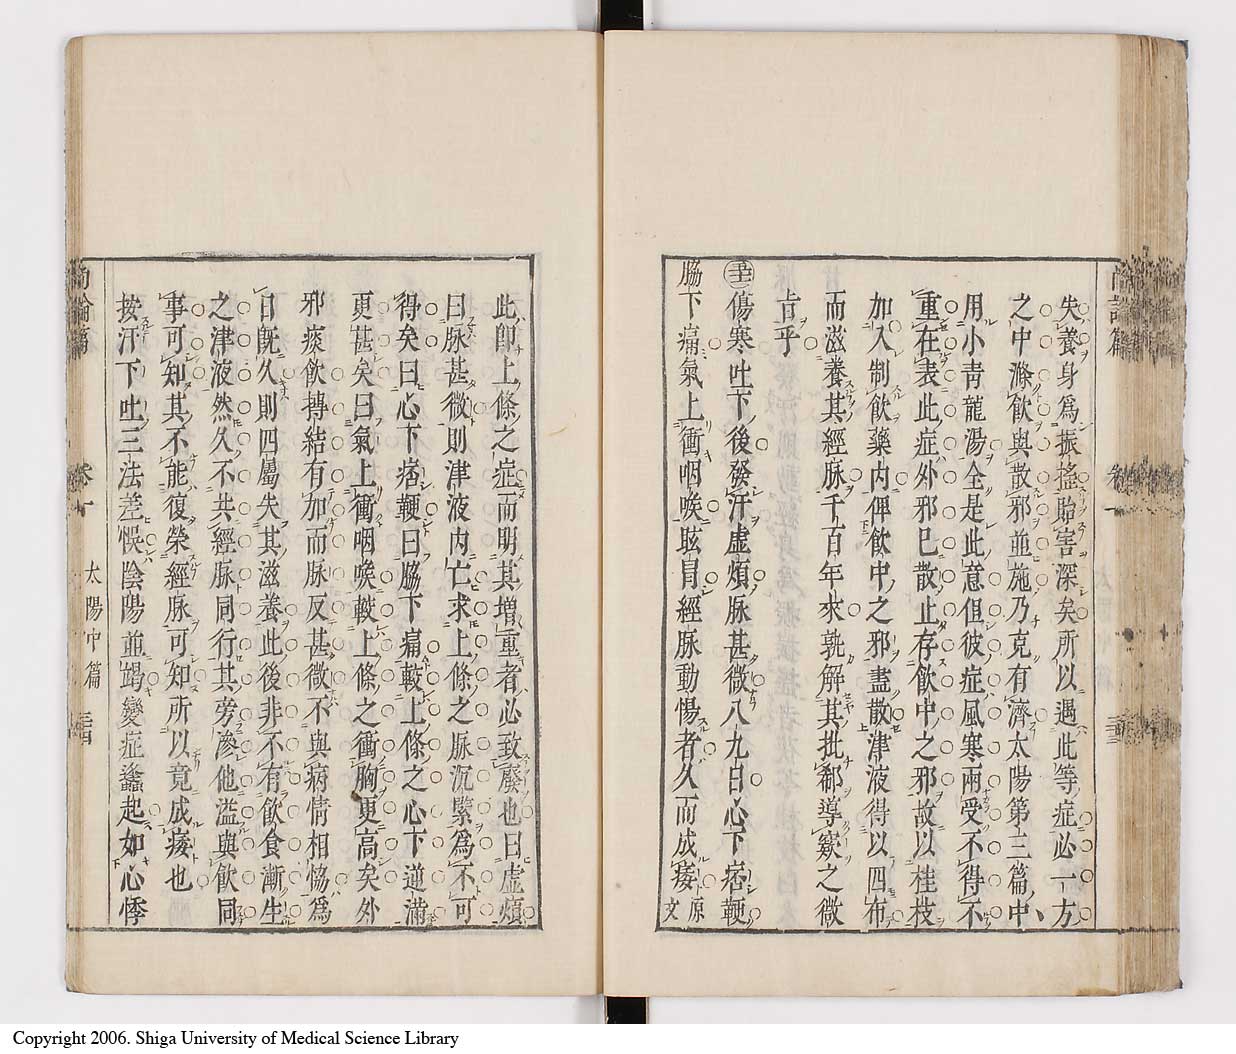 失養身爲振搖貽害深矣所以遇此等症必一方
之中滌飲與散邪並施乃克有濟太陽第三篇中
用小青龍湯全是此意但彼症風寒兩受不得不
重在表此症外邪已散止存飲中之邪故以桂枝
加入制飲藥内俾飲中之邪盡散津液得以四布
而滋養其經脉千百年來孰解其批郤導窾之微
㫖乎
傷寒吐下後發汗虛煩脉甚微八九日心下痞鞕
脇下痛氣上衝咽喉眩冒經脉動惕者久而成痿 原文
此卽上條之症而明其增重者必致廢也曰虛煩
曰脉甚微則津液内亡求上條之脉沉緊爲不可
得矣曰心下痞鞕曰脇下痛較上條之心下逆滿
更甚矣曰氣上衝咽喉較上條之衝胸更高矣外
邪痰飲摶結有加而脉反甚微不與病情相恊爲
日旣久則四屬失其滋養此後非不有飲食漸生
之津液然久不共經脉同行其旁滲他溢與飲同
事可知其不能復榮經脉可知所以竟成痿也
按汗下吐三法差悞陰陽並竭變症蠭起如心悸
尚論篇 卷一 太陽中篇 三十四
Copyright 2006. Shiga University of Medical Science Library